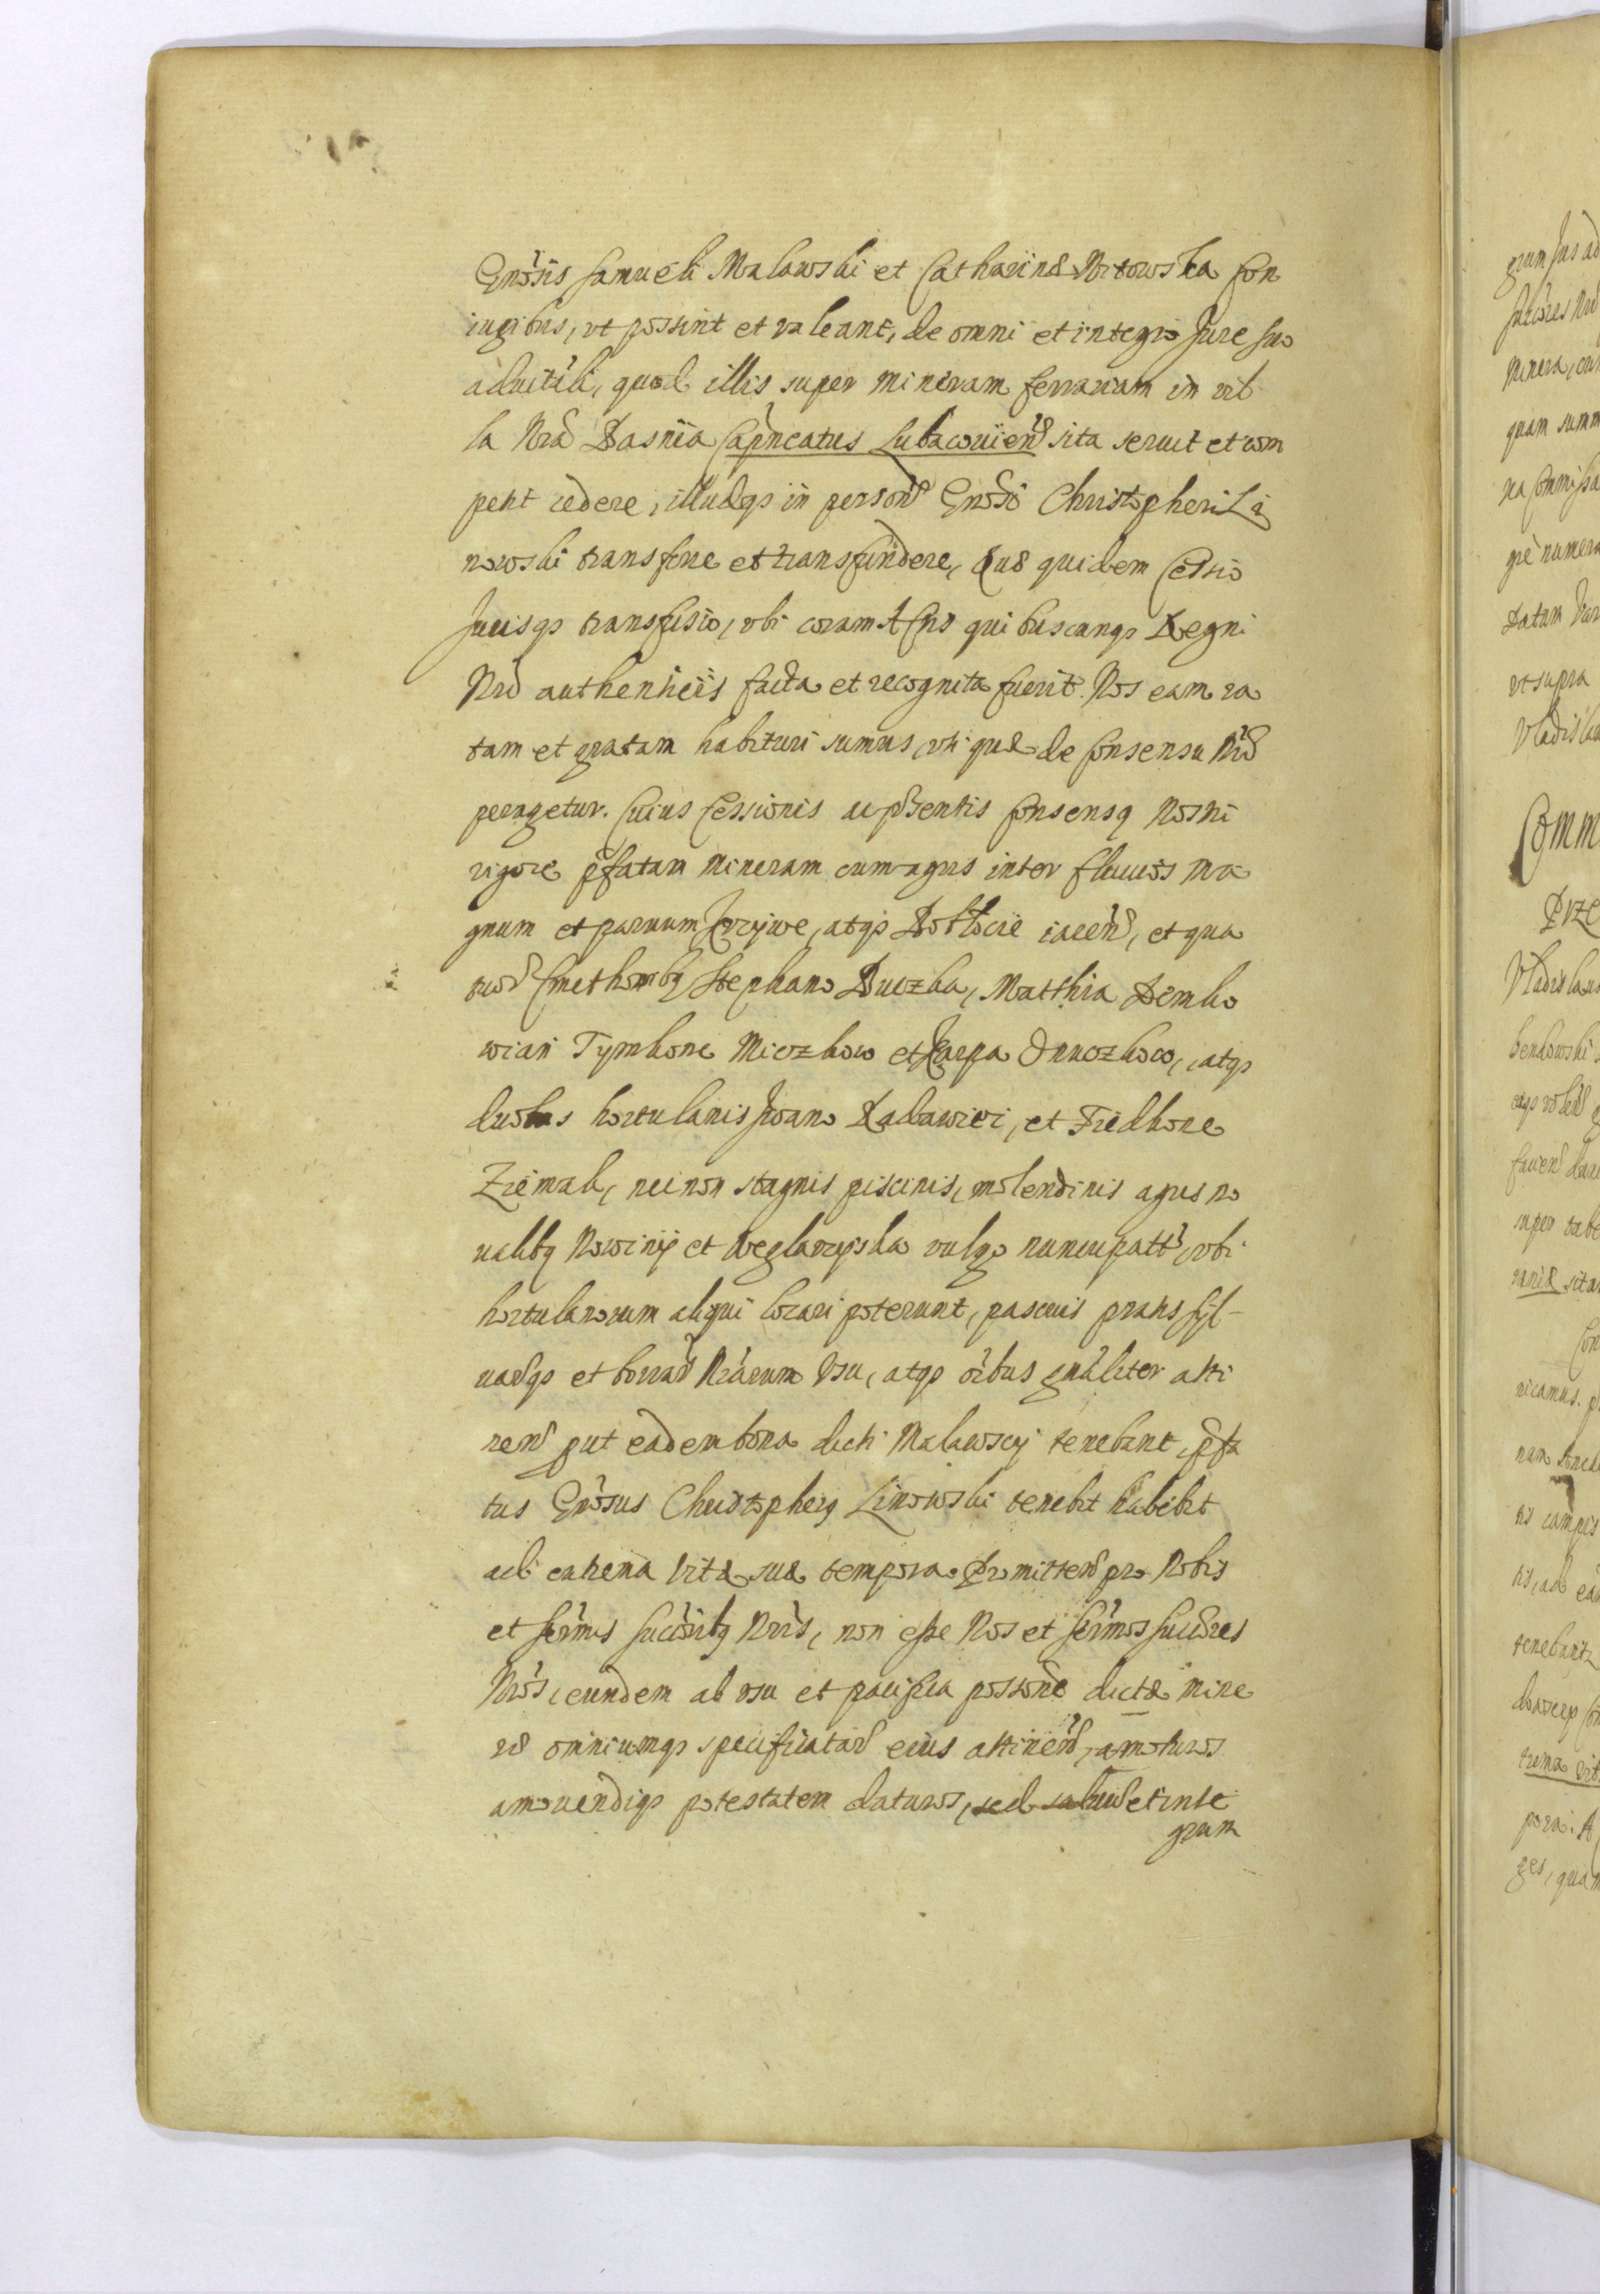 Gnosis Samueli Malawski et Catharinæ Witowska Con
iugibus, vt possint et valeant, de omni et integro Jure suo
aduitali, quod illis super mineram ferrariam in vil
la Nrã Basnia Capneatus Lubaczouien sita seruit et com
petit cedere, illudqs in persona Gnosi Christopheri Li
nowski transferre et transfundere, Quæ quidem Cessio
Jurisqs transfusio, vbi coram Actis quibuscunqs Regni
Nri authenticis facta et recognita fuerit. Nos eam ra
tam et gratam habituri sumus, vti quæ de Consensu Nro
peragetur. Cuius Cessionis ac pñsentis Consensq Nostri
vigore pfatam mineram cum agris inter fluuios ma
gnum et paruum Krzywe, atqs iaceñ, et qua
tuor Cmethonibq Stephano Duczka, Matthia Dembo
wian Tymkone Miczkow et Karpa Onuczkow, atqs
duobus hortulanis Iwano Radawiec, et Fiedkone
Ziemak, necnon stagnis piscinis, molendinis agris no
ualibq Nowiny et Weglarzyska vulgo nuncupatt, vbi
hortulanorum aliqui locari poterunt, pascuis pratis syl-
uarqs et borrar Nrarum vsu, atqs oibus gnaliter atti
neñ put eadem bona dicti Malawscy tenebant, pfa
tus Gnosus Christopherq Linowski tenebit habebit
ad extrema vitæ suæ tempora. Promitteñ pro Nobis
et Sermis Succoribq Nris, non esse Nos et Sermos Succores
Nros, eundem ab vsu et pacifica possone dictæ mine
ræ omniumqs specificatar eius attineñ, amoturos
amouendiqs potestatem daturos, sed saluũ et inte
grum